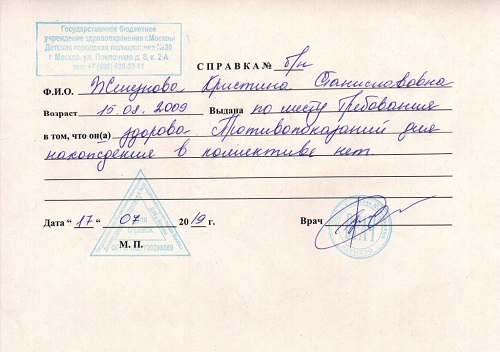 Государственное бюджетное
учреждение здравоохранения г.Москвы
Детская городская поликлиника №30
г. Москва, ул. Поклонная д. 8, к. 2 А
СПРАВКА № б/н
Ф.И.О. Кристина Станиславовна
Возраст 15.08.2009 Выдана по месту требования
в том, что он(а) здорова. Противопоказаний для
нахождение в коллективе нет.
Дата "17" 07 2019 г. Врач
М. П.